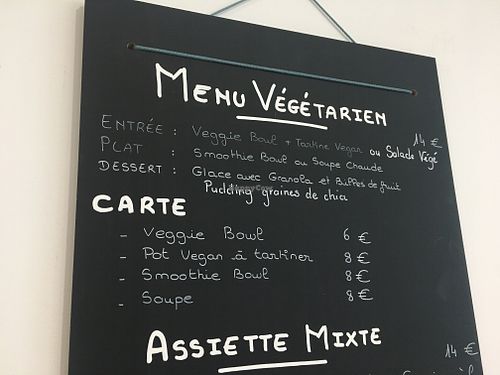 MENU VÉGÉTARIEN
14 €
ENTRÉE : Veggie Bowl + Tartine Vegan ou Salade Végé
PLAT : Smoothie Bowl ou Soupe Chaude
DESSERT : Glace avec Granola et Billes de fruit
Pudding graines de chia
CARTE
- Veggie Bowl 6 €
- Pot Vegan à tartiner 8 €
- Smoothie Bowl 8 €
- Soupe 8 €
ASSIETTE MIXTE
14 €